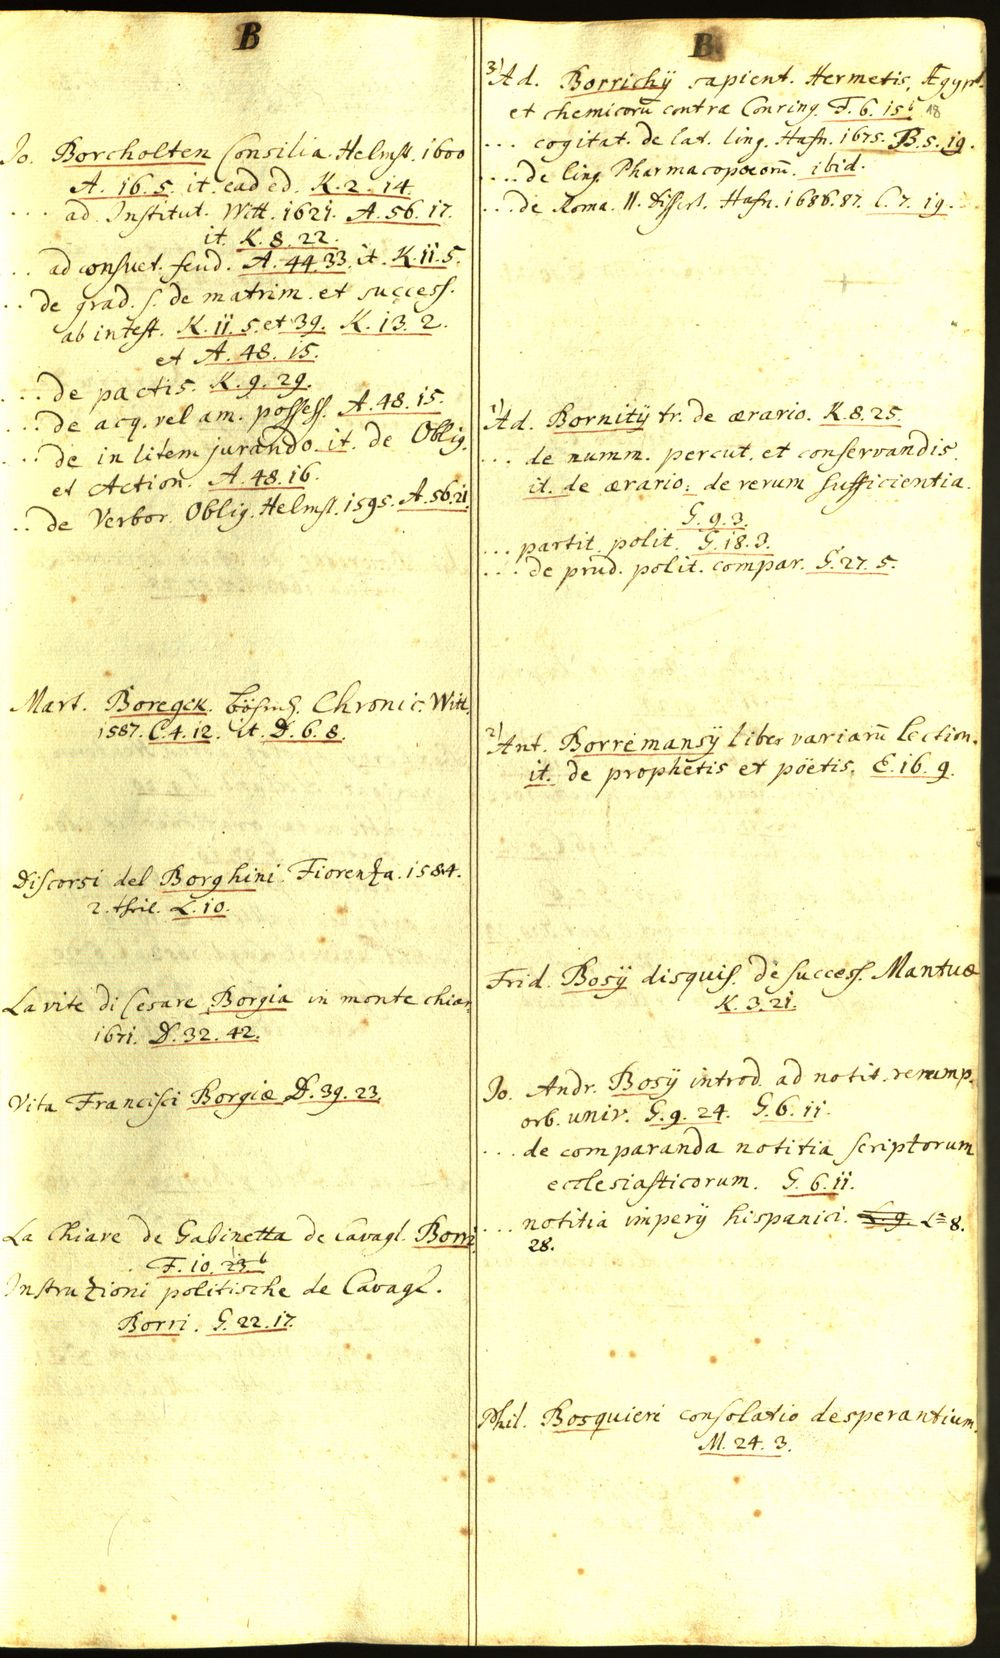 B
Jo. Borcholten Consilia. Helmst. 1600
A. 16. 5. it. ead ed. K. 2. 14.
... ad Institut. Witt. 1621. A. 56. 17.
it. K. 8. 22.
.. ad consuet. feud. A. 44. 33. it. K. 11. 5.
.. de grad. s. de matrim. et success.
ab intest. K. 11. 5. et 39. K. 13. 2.
et A. 48. 15.
... de pactis. K. 9. 29.
... de acq. vel am. possess. A. 48. 15.
... de in litem jurando. it. de Oblig.
et Action. A. 48. 16.
.. de Verbor. Oblig. Helmst. 1595. A. 56. 21.
Mart. Boregck. Böhmis. Chronic. Witt.
1587. C. 4. 12. it. D. 6. 8.
Discorsi del Borghini. Fiorenza. 1584.
2. theil. L. 10.
La vite di Cesare Borgia in monte chiar.
1671. D. 32. 42.
Vita Francisci Borgiæ D. 39. 23.
La Chiave de Gabinetta de Cavagl. Borri
F. 10. 23. b
Instruzioni politische de Cavagl.
Borri. G. 22. 17.
B
3) Ad. Borrichÿ sapient. Hermetis, Ægypt.
et chemicorū contra Conring. F. 6. 15 b 18
... cogitat. de lat. ling. Hafn. 1675. B. 5. 19.
... de ling. Pharmacopoeorū. ibid.
... de Roma. II. Dissert. Hafn. 1686. 87. C. 7. 19.
1) Ad. Bornitÿ tr. de ærario. K. 8. 25.
... de numm. percut. et conservandis.
it. de ærario: de rerum sufficientia.
G. 9. 3.
... partit. polit. G. 18. 3.
... de prud. polit. compar. G. 27. 5.
2) Ant. Borremansÿ liber variarū lection.
it. de prophetis et pöetis. E. 16. 9.
Frid. Bosÿ disquis. de success. Mantuæ
K. 3. 21.
Jo. Andr. Bosÿ introd. ad notit. rerump.
orb. univ. G. 9. 24. G. 6. 11.
... de comparanda notitia scriptorum
ecclesiasticorum. G. 6. 11.
... notitia imperÿ hispanici. L. 9. L. 8.
28.
Phil. Bosquieri consolatio desperantium.
M. 24. 3.